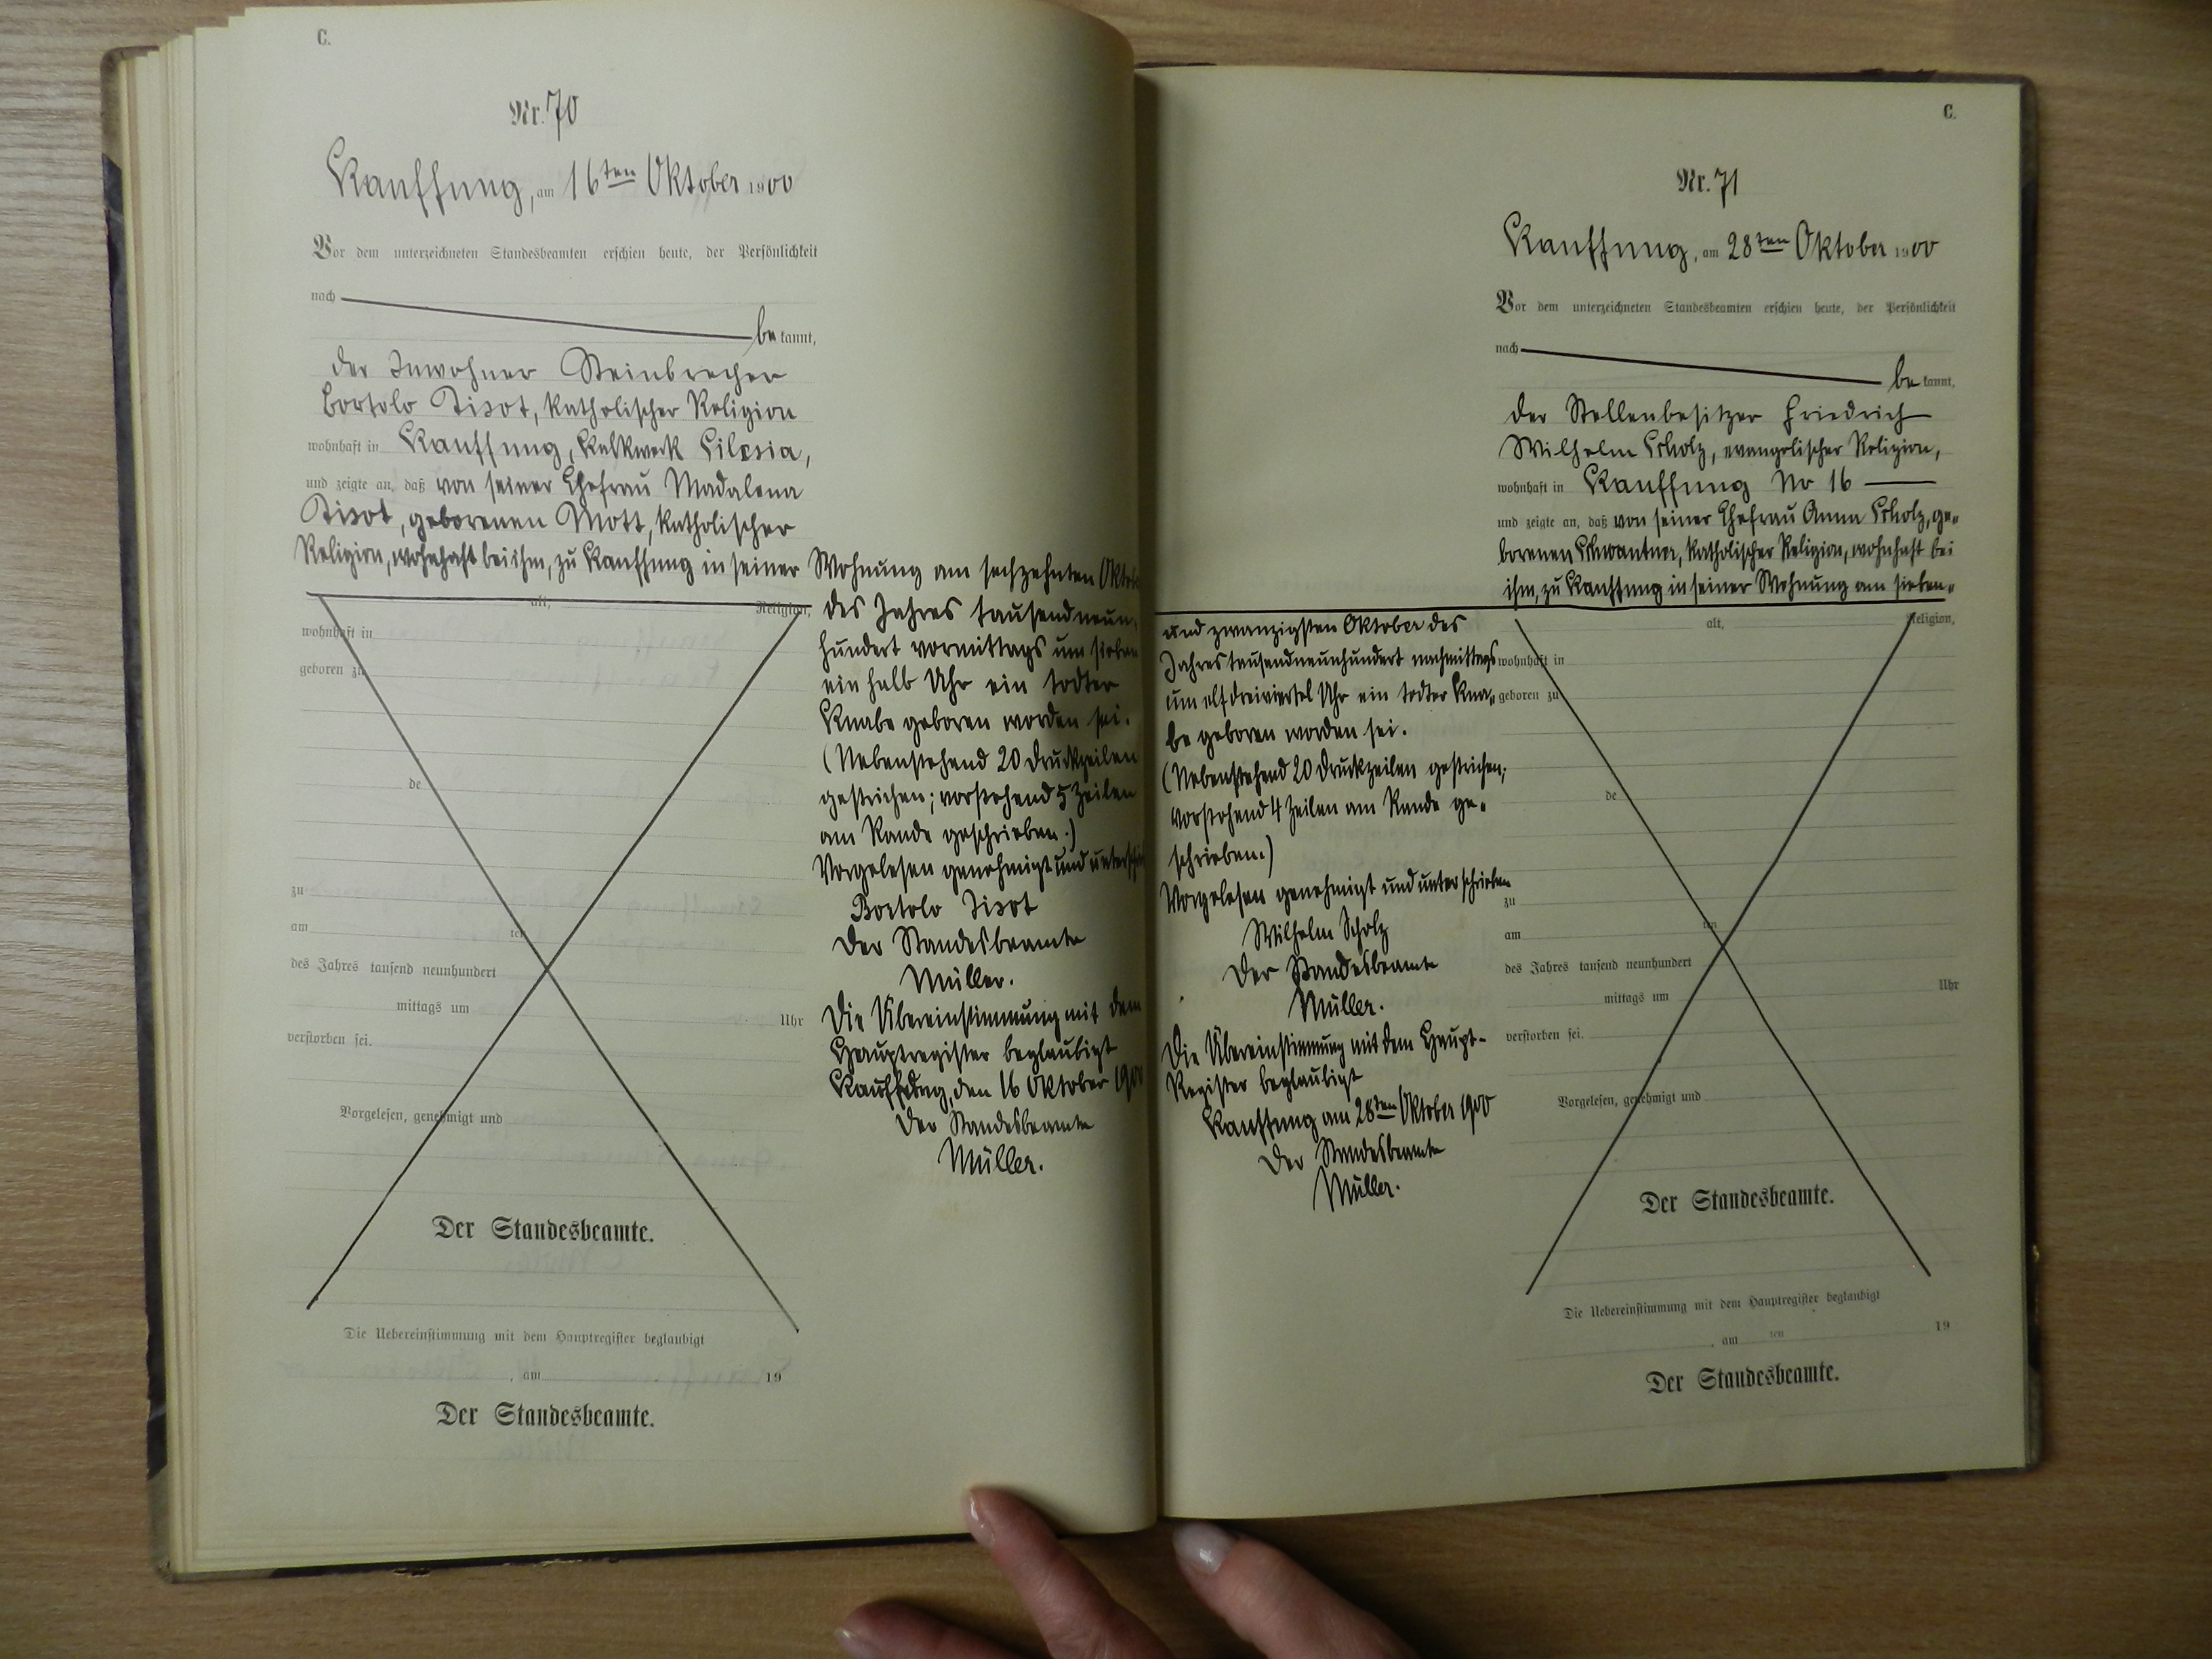 C.
Nr. 70
Kauffung, am 16ten Oktober 1900
Vor dem unterzeichneten Standesbeamten erschien heute, der Persönlichkeit
nach
bekannt,
der Inwohner Steinbrecher
Bortolo Tisot, katholischer Religion
wohnhaft in Kauffung, Kalkwerk Silesia,
und zeigte an, daß von seiner Ehefrau Madalena
Tisot, geborenen Mott, katholischer
Religion, wohnhaft bei ihm, zu Kauffung in seiner Wohnung am sechzehnten Oktober
alt, Religion,
des Jahres tausendneun-
wohnhaft in
hundert vormittags um sieben
geboren zu
ein halb Uhr ein todter
Knabe geboren worden sei.
(Nebenstehend 20 Druckzeilen
de
gestrichen; vorstehend 5 Zeilen
am Rande geschrieben.)
Vorgelesen genehmigt und
zu
Bortolo Tisot
am ten
Der Standesbeamte
des Jahres tausend neunhundert
Müller.
mittags um Uhr
Die Übereinstimmung mit dem
verstorben sei.
Hauptregister beglaubigt
Kauffung, den 16 Oktober 1900
Vorgelesen, genehmigt und
Der Standesbeamte
Müller.
Der Standesbeamte.
Die Uebereinstimmung mit dem Hauptregister beglaubigt
, am 19
Der Standesbeamte.
C.
Nr. 71
Kauffung, am 28ten Oktober 1900
Vor dem unterzeichneten Standesbeamten erschien heute, der Persönlichkeit
nach
bekannt,
der Stellenbesitzer Friedrich
Wilhelm Scholz, evangelischer Religion,
wohnhaft in Kauffung No 16
und zeigte an, daß von seiner Ehefrau Anna Scholz, ge-
borenen Schwantner, katholischer Religion, wohnhaft bei
ihm, zu Kauffung in seiner Wohnung am sieben-
und zwanzigsten Oktober des
alt, Religion,
Jahres tausendneunhundert nachmittags
wohnhaft in
um elf dreiviertel Uhr ein todter Kna-
geboren zu
be geboren worden sei.
(Nebenstehend 20 Druckzeilen gestrichen;
de
vorstehend 4 Zeilen am Rande ge-
schrieben.)
Vorgelesen genehmigt und unterschrieben
zu
Wilhelm Scholz
am ten
Der Standesbeamte
des Jahres tausend neunhundert
Müller.
mittags um Uhr
Die Übereinstimmung mit dem Haupt-
verstorben sei.
Register beglaubigt
Kauffung am 28ten Oktober 1900
Vorgelesen, genehmigt und
Der Standesbeamte
Müller.
Der Standesbeamte.
Die Uebereinstimmung mit dem Hauptregister beglaubigt
, am ten 19
Der Standesbeamte.